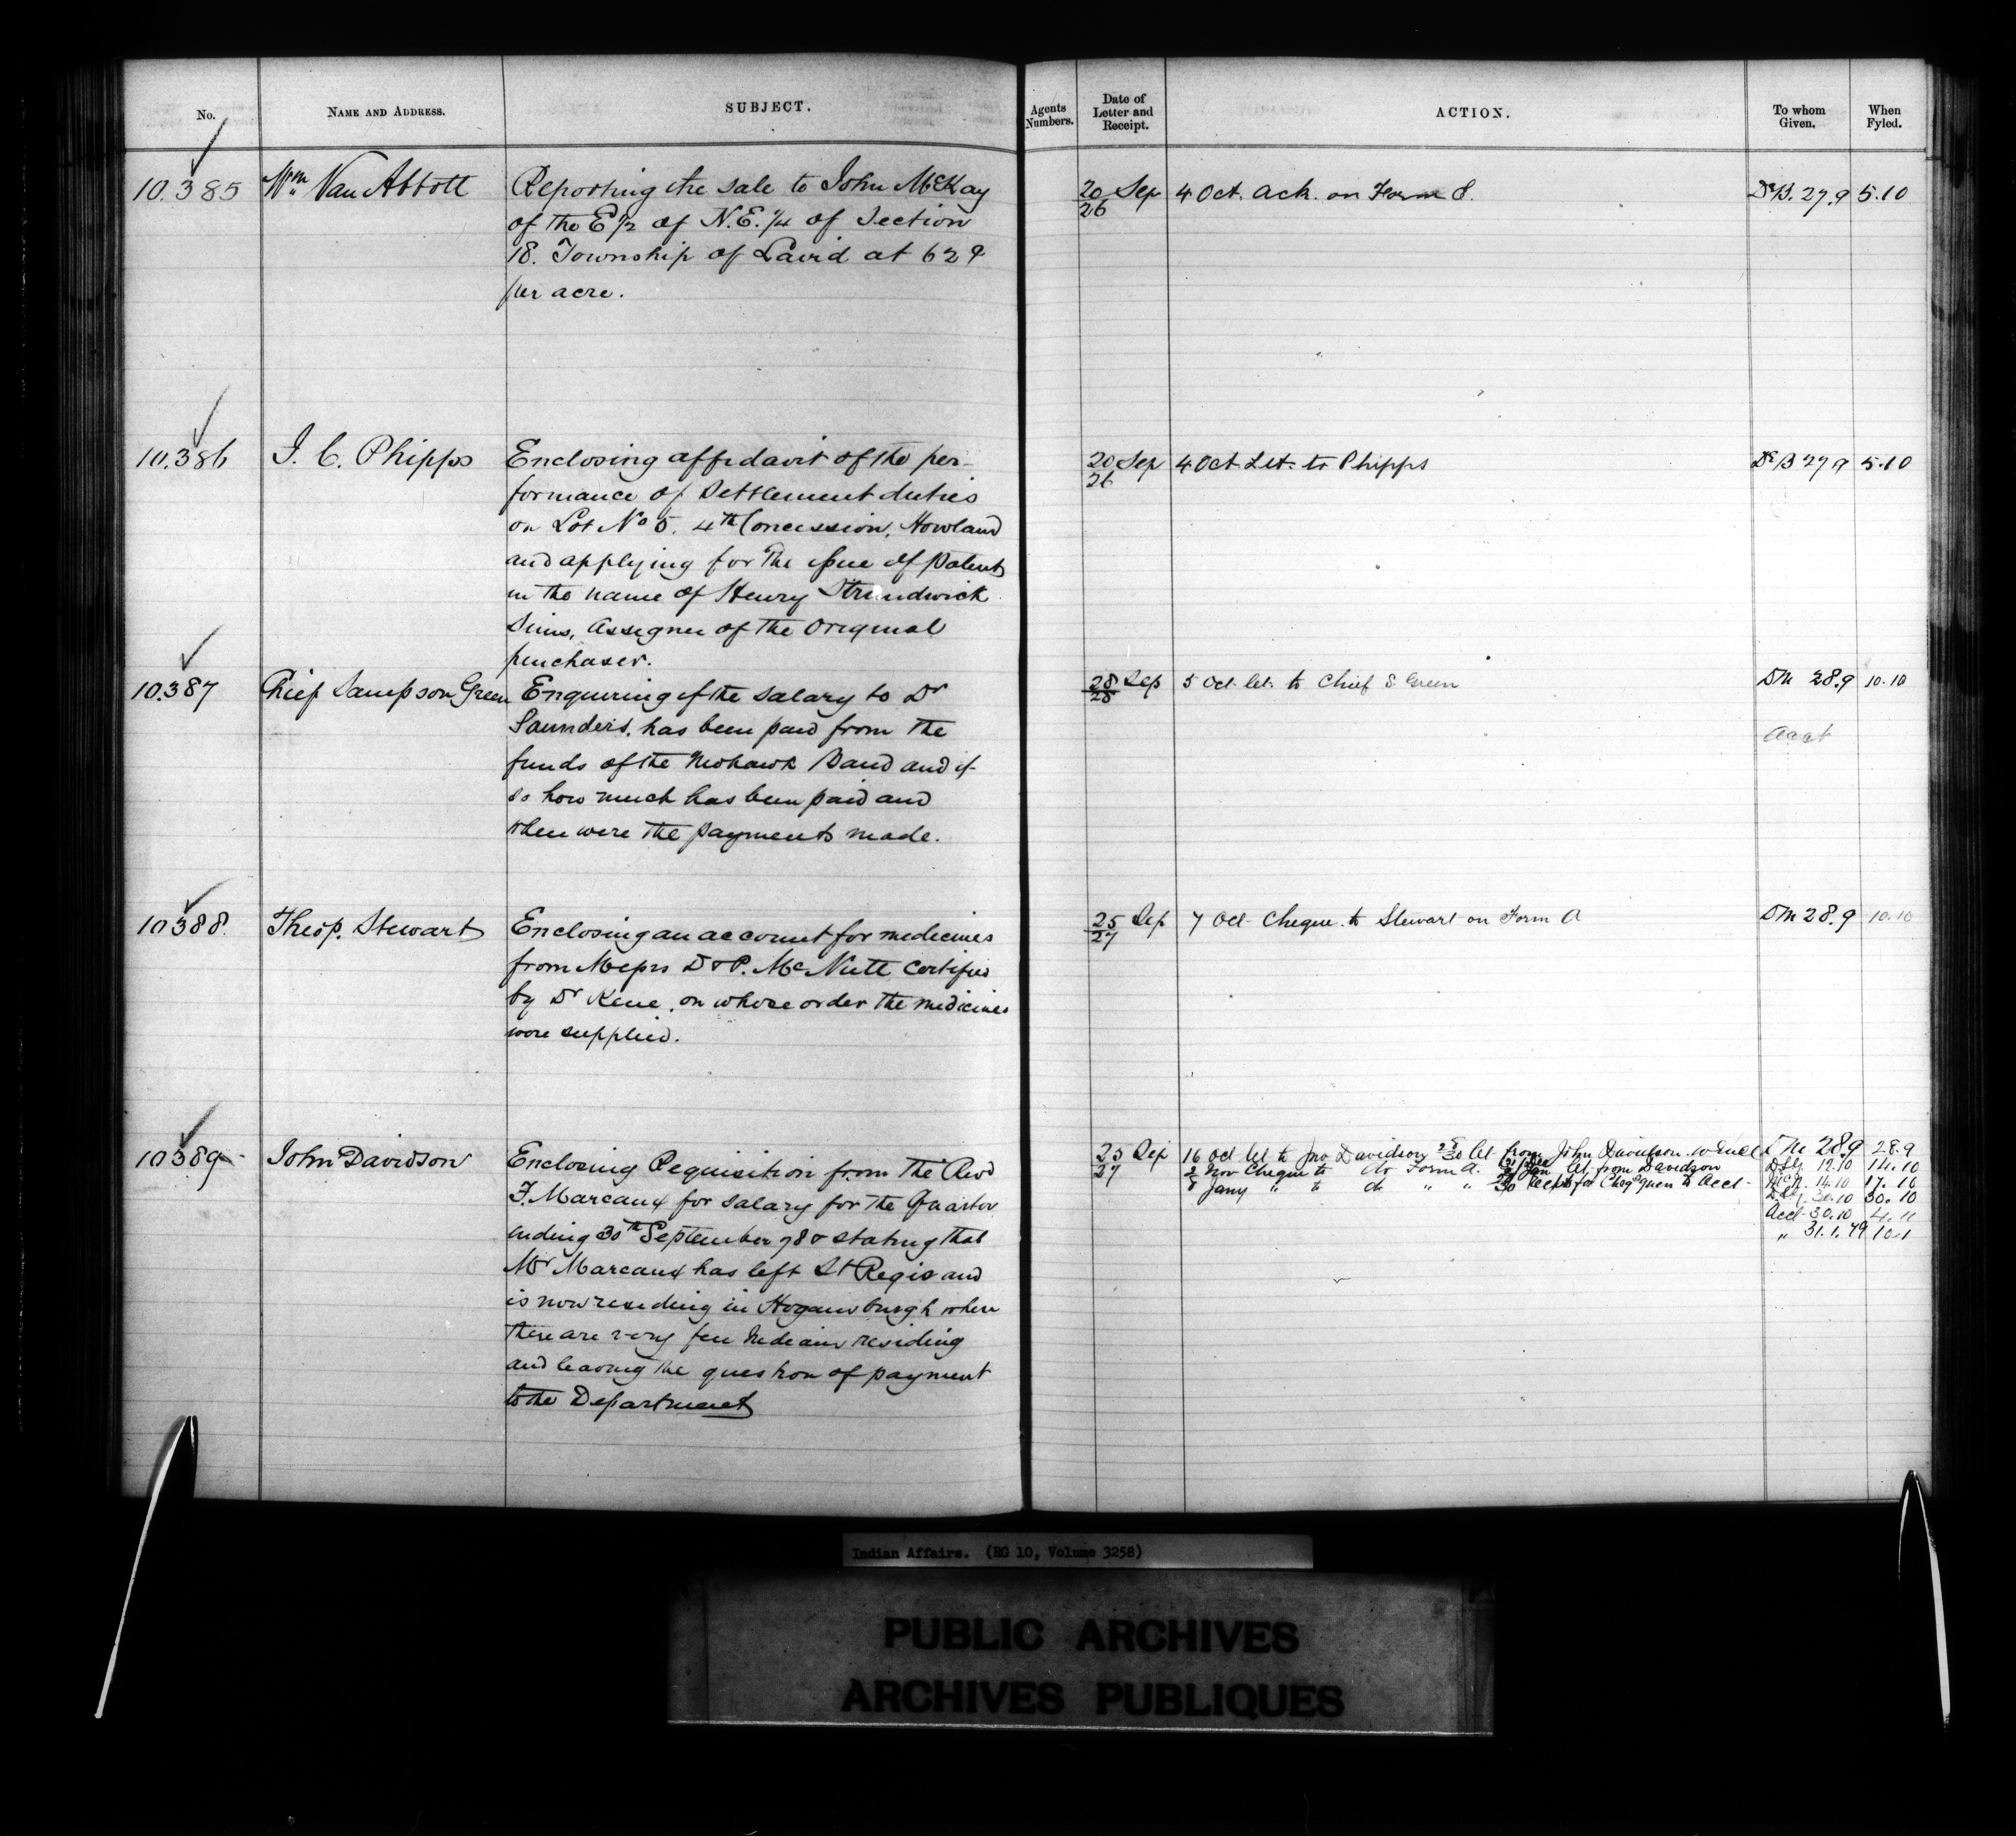 No.
NAME AND ADDRESS.
SUBJECT.
Agents Numbers.
Date of Letter and Receipt.
ACTION.
To whom Given.
When Fyled.
10.385
Wm Van Abbott
Reporting the sale to John McKay
of the E 1/2 of N.E. 1/4 of Section
18. Township of Laird at 62 ¢
per acre.
20/26 Sep
4 Oct. Ack. on Form E.
De B. 27.9
5.10
10.386
J. C. Phipps
Enclosing affidavit of the per-
formance of Settlement duties
on Lot No 5. 4th Concession, Howland
and applying for the issue of Patent
in the name of Henry Strudwick
Sims, Assignee of the Original
purchaser.
20/26 Sep
4 Oct Let. to Phipps
De B 27 9
5.10
10.387
Chief Sampson Green
Enquiring if the salary to Dr
Saunders, has been paid from the
funds of the Mohawk Band and if
so how much has been paid and
when were the payments made.
28/28 Sep
5 Oct. let. to Chief S. Green
DM 28.9
10.10
Acct
10.388.
Theop. Stewart
Enclosing an account for medicines
from Messrs D & P. McNutt certified
by Dr Kene, on whose order the medicines
were supplied.
25/27 Sep
7 Oct Cheque to Stewart on Form A
DM 28.9
10.10
10389
John Davidson
Enclosing Requisition from The Revd
F. Marcoux for salary for the Quarter
ending 30th September 78 & stating that
Mr Marcoux has left St Regis and
is now residing in Hogansburgh where
there are very few Indians residing
and leaving the question of payment
to the Department
25/27 Sep
16 Oct let to Jno Davidson 28/30 let from John Davidson
2 Nov Cheque to do Form A. let from Davidson
8 Jany " to do " "
DM 28.9 28.9
12.10 14.10
14.10 17.10
30.10 30.10
Acct 30.10 4.11
" 31.1.79 10.1
Indian Affairs. (RG 10, Volume 3258)
PUBLIC ARCHIVES
ARCHIVES PUBLIQUES